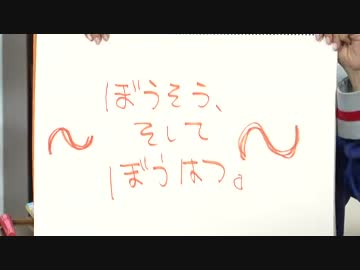 ぼうそう、
～ そして ～
ぼうはつ。